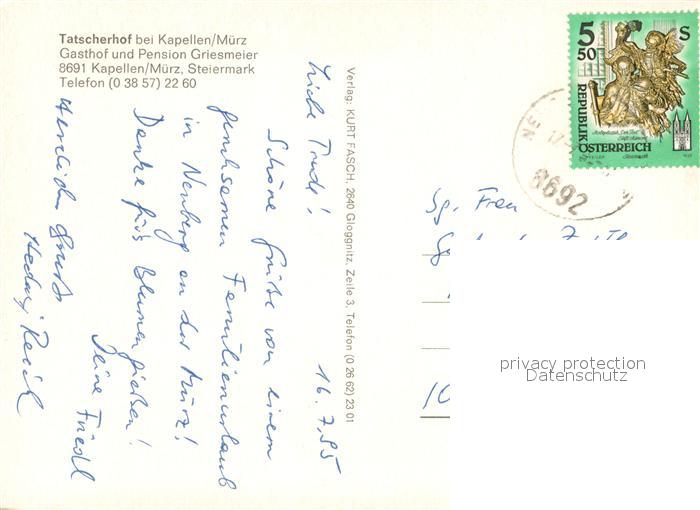 Tatscherhof bei Kapellen/Mürz
Gasthof und Pension Griesmeier
8691 Kapellen/Mürz, Steiermark
Telefon (0 38 57) 22 60
16.7.95
Liebe Trude!
Schöne Grüße von einem
gemeinsamen Familienurlaub
in Neuberg an der Mürz!
Danke fürs Blumengießen!
Deine Friedl
Herzliche Grüße
Hedwig Reich
Verlag: KURT FASCH, 2640 Gloggnitz, Zeile 3, Telefon (0 26 62) 23 01
5 50 S
REPUBLIK
ÖSTERREICH
NE
8692
Sg. Frau
10
privacy protection
Datenschutz